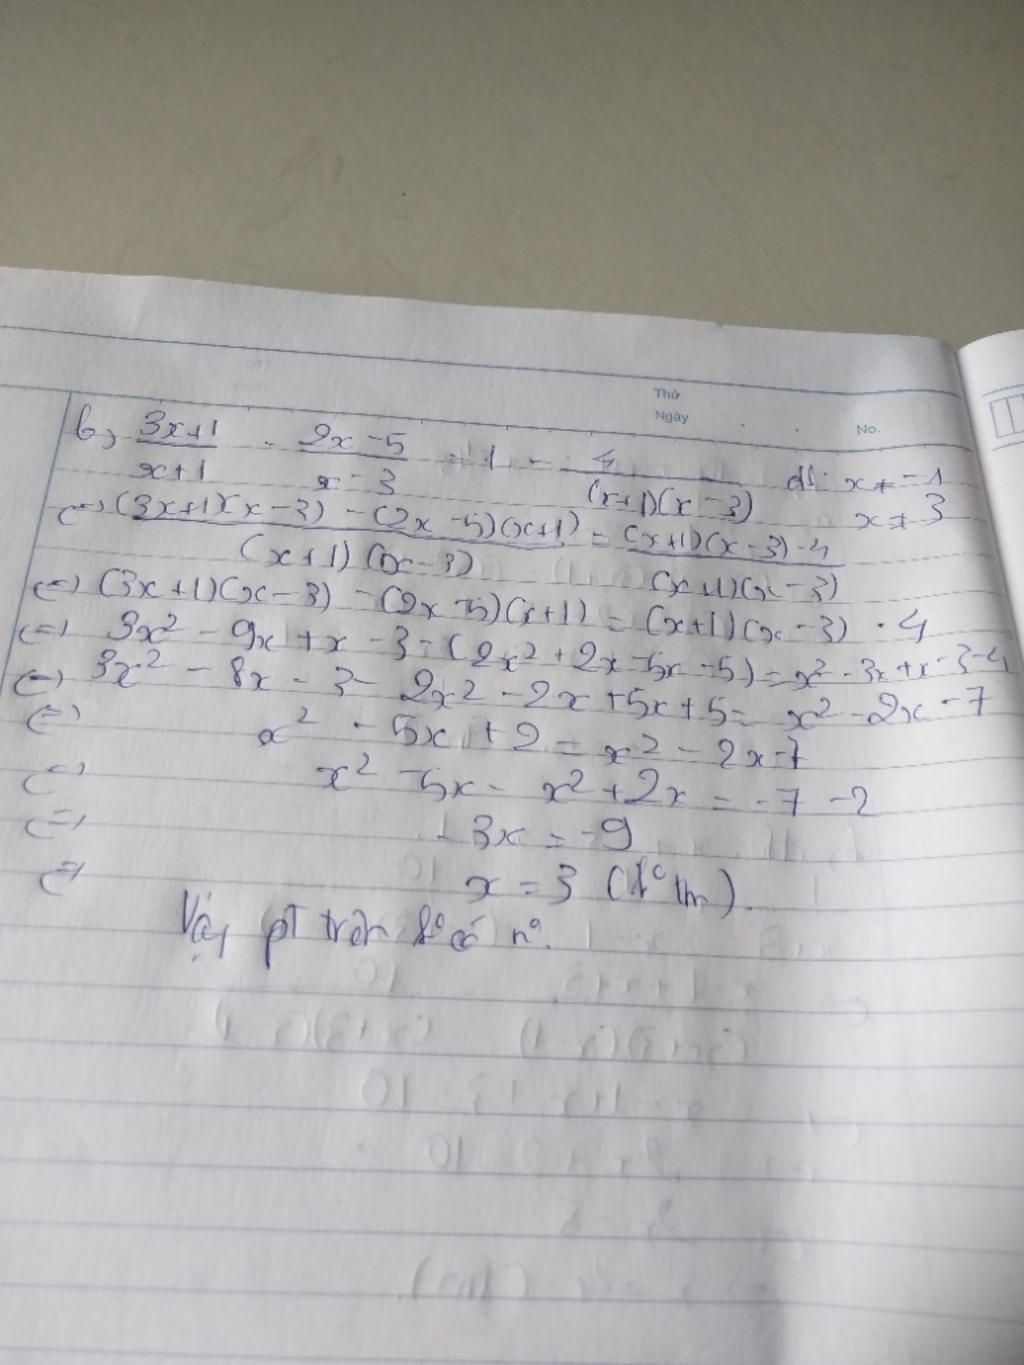 Thứ
Ngày
No.
b, 3x+1/x+1 - 2x-5/x-3 = 1 - 4/(x+1)(x-3) đk: x ≠ -1
x ≠ 3
<=> (3x+1)(x-3) - (2x-5)(x+1)/(x+1)(x-3) = (x+1)(x-3)-4/(x+1)(x-3)
<=> (3x+1)(x-3) - (2x-5)(x+1) = (x+1)(x-3) - 4
<=> 3x² - 9x + x - 3 - (2x² + 2x - 5x - 5) = x² - 3x + x - 3 - 4
<=> 3x² - 8x - 3 - 2x² - 2x + 5x + 5 = x² - 2x - 7
<=> x² - 5x + 2 = x² - 2x - 7
<=> x² - 5x - x² + 2x = -7 - 2
<=> -3x = -9
<=> x = 3 (k° tm).
Vậy pt trên k° có n°.